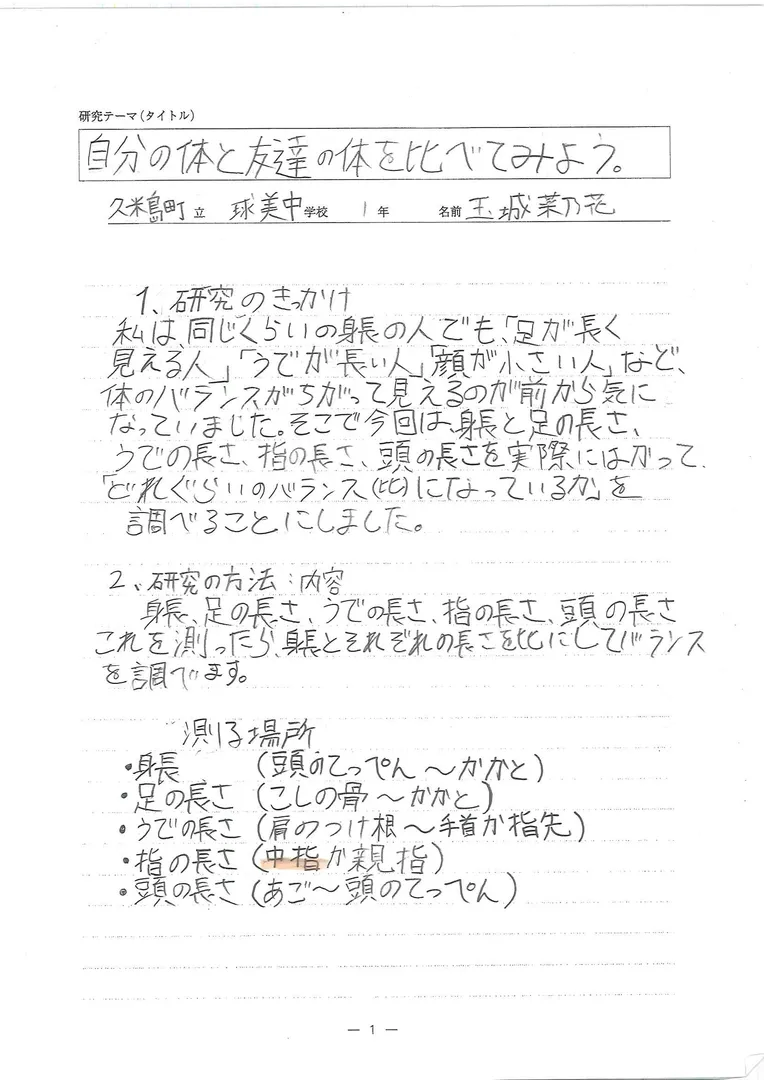 研究テーマ(タイトル)
自分の体と友達の体を比べてみよう。
久米島町立 球美中学校 1年 名前 玉城菜乃花
1、研究のきっかけ
私は、同じくらいの身長の人でも、「足が長く
見える人」「うでが長い人」「顔が小さい人」など、
体のバランスがちがって見えるのが前から気に
なっていました。そこで今回は、身長と足の長さ、
うでの長さ、指の長さ、頭の長さを実際にはかって、
「どれぐらいのバランス(比)になっているか」を
調べることにしました。
2、研究の方法:内容
身長、足の長さ、うでの長さ、指の長さ、頭の長さ
これを測ったら、身長とそれぞれの長さを比にしてバランス
を調べます。
測る場所
・身長 (頭のてっぺん〜かかと)
・足の長さ (こしの骨〜かかと)
・うでの長さ (肩のつけ根〜手首か指先)
・指の長さ (中指か親指)
・頭の長さ (あご〜頭のてっぺん)
— 1 —